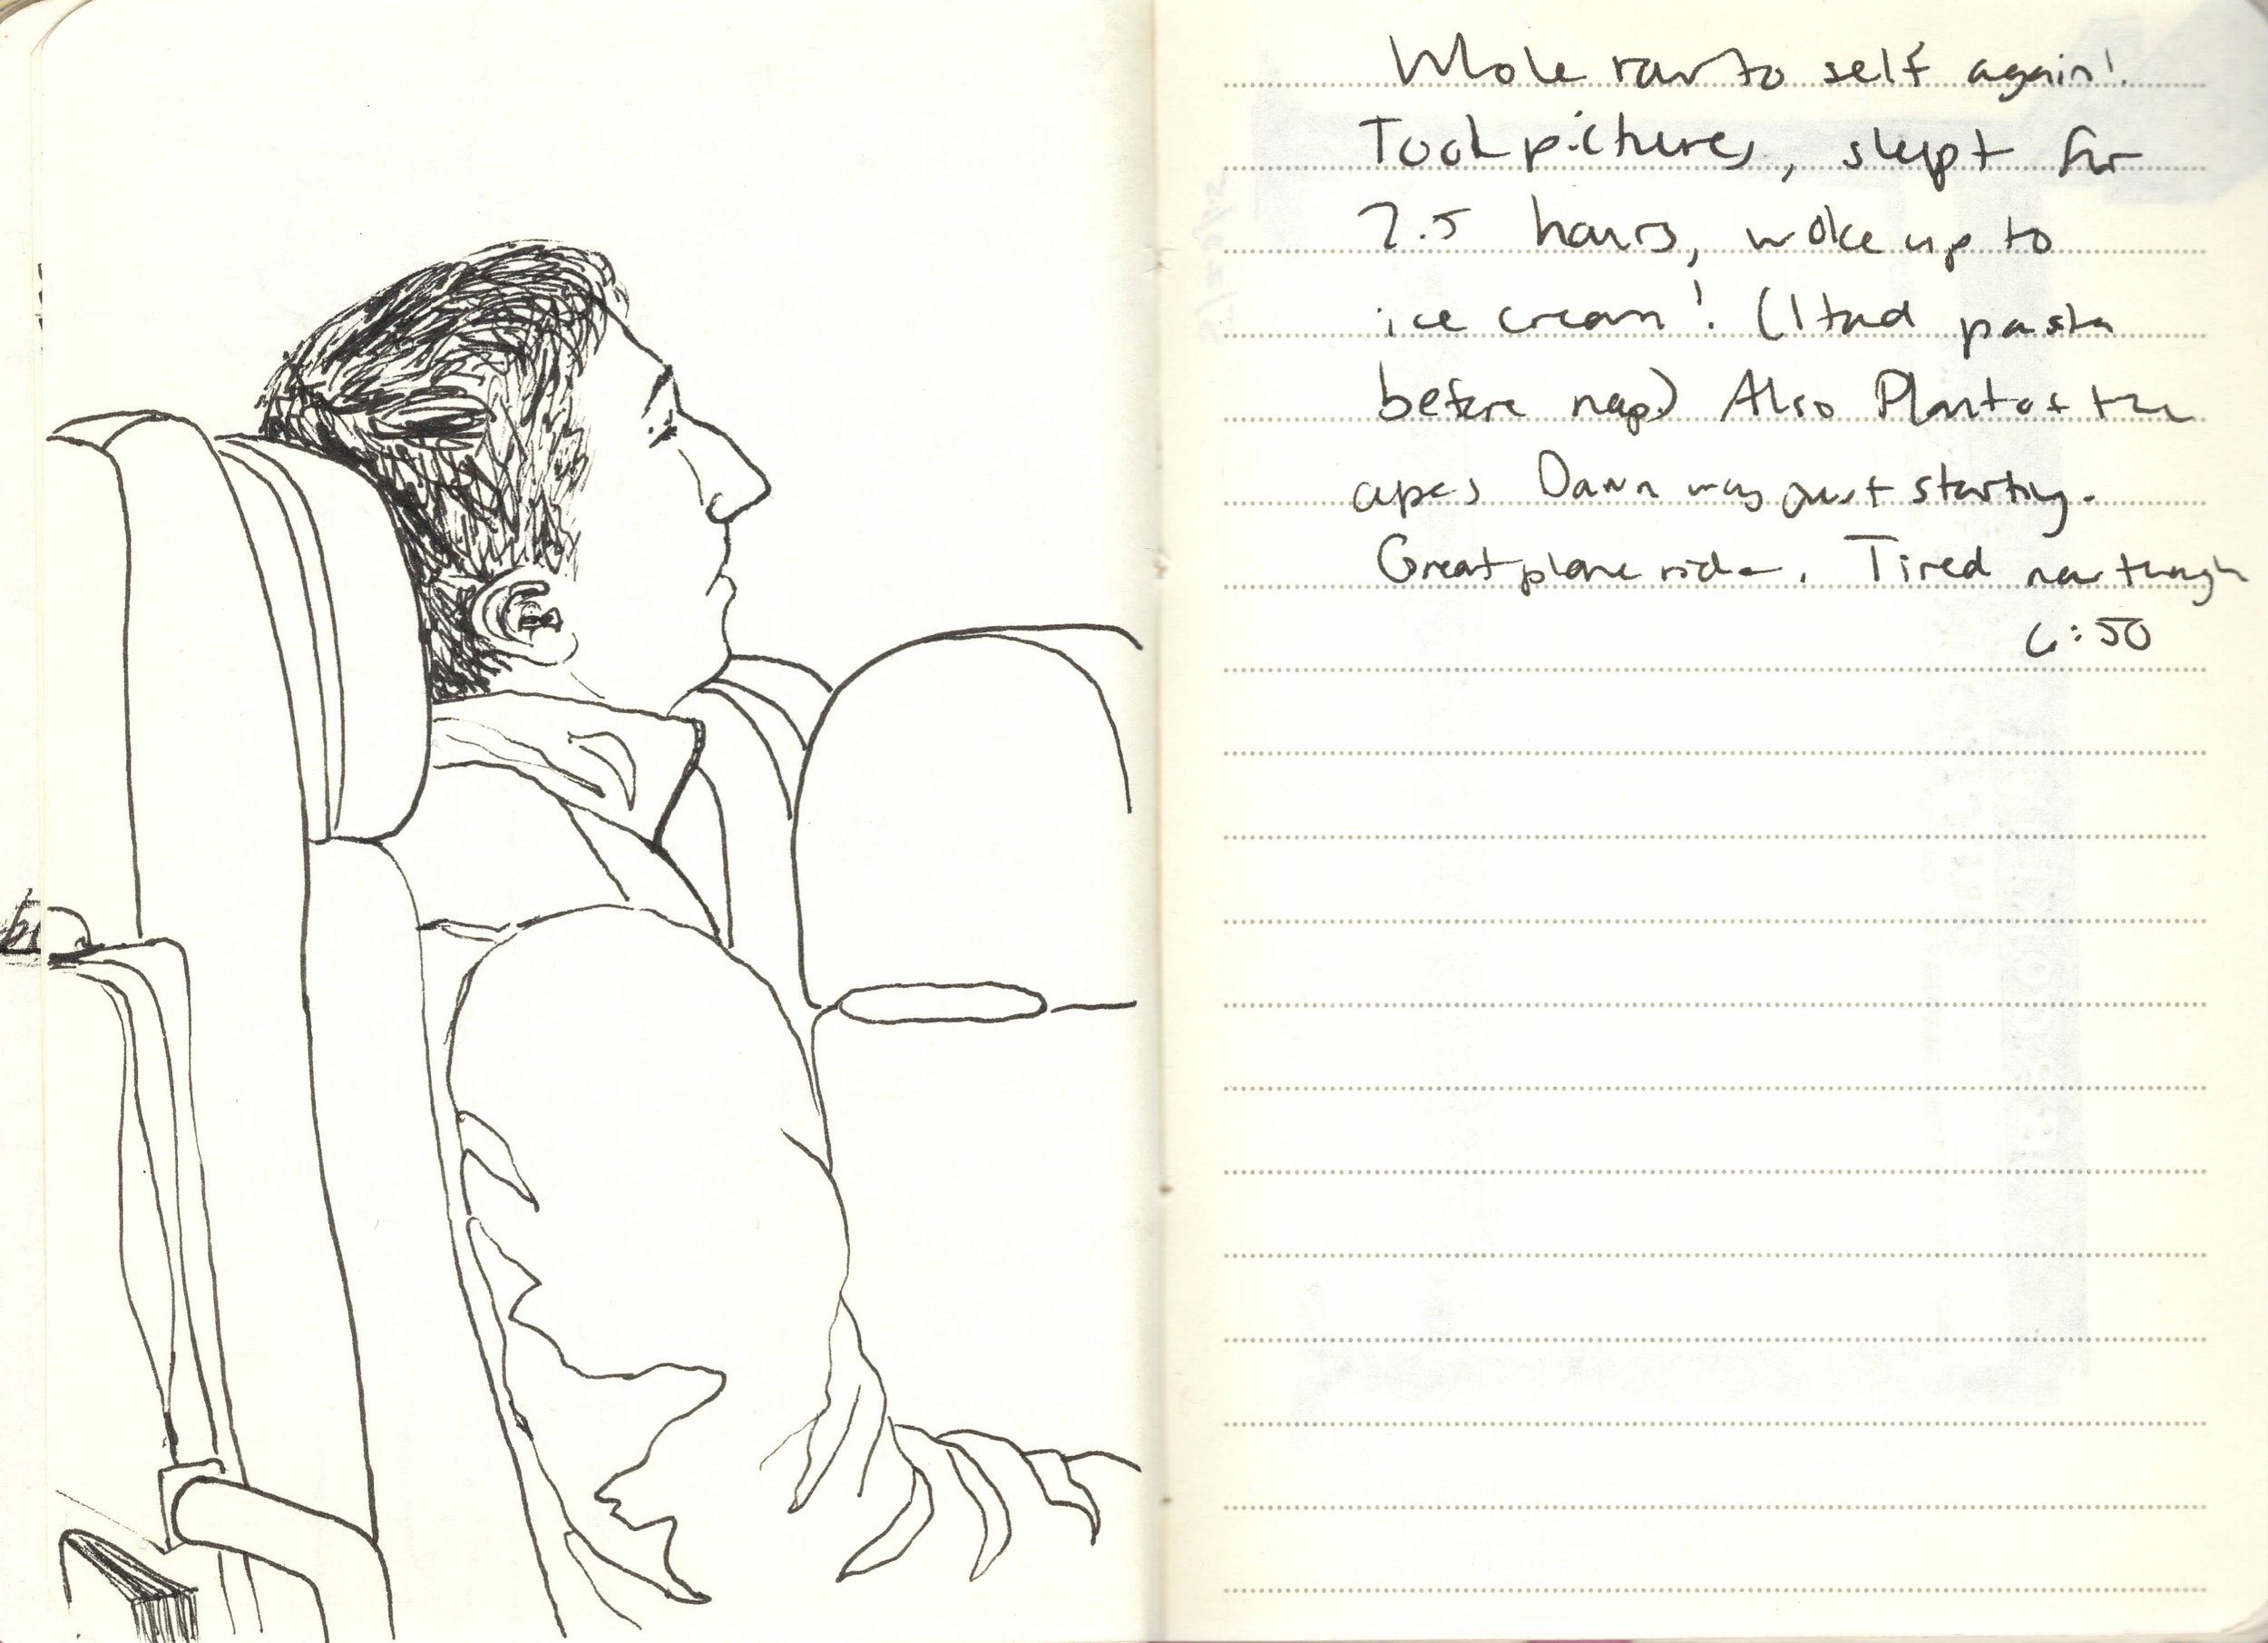 Whole row to self again!
Took pictures, slept for
7.5 hours, woke up to
ice cream! (I had pasta
before nap) Also Planet of the
apes Dawn was just starting.
Great plane ride. Tired now though
6:50